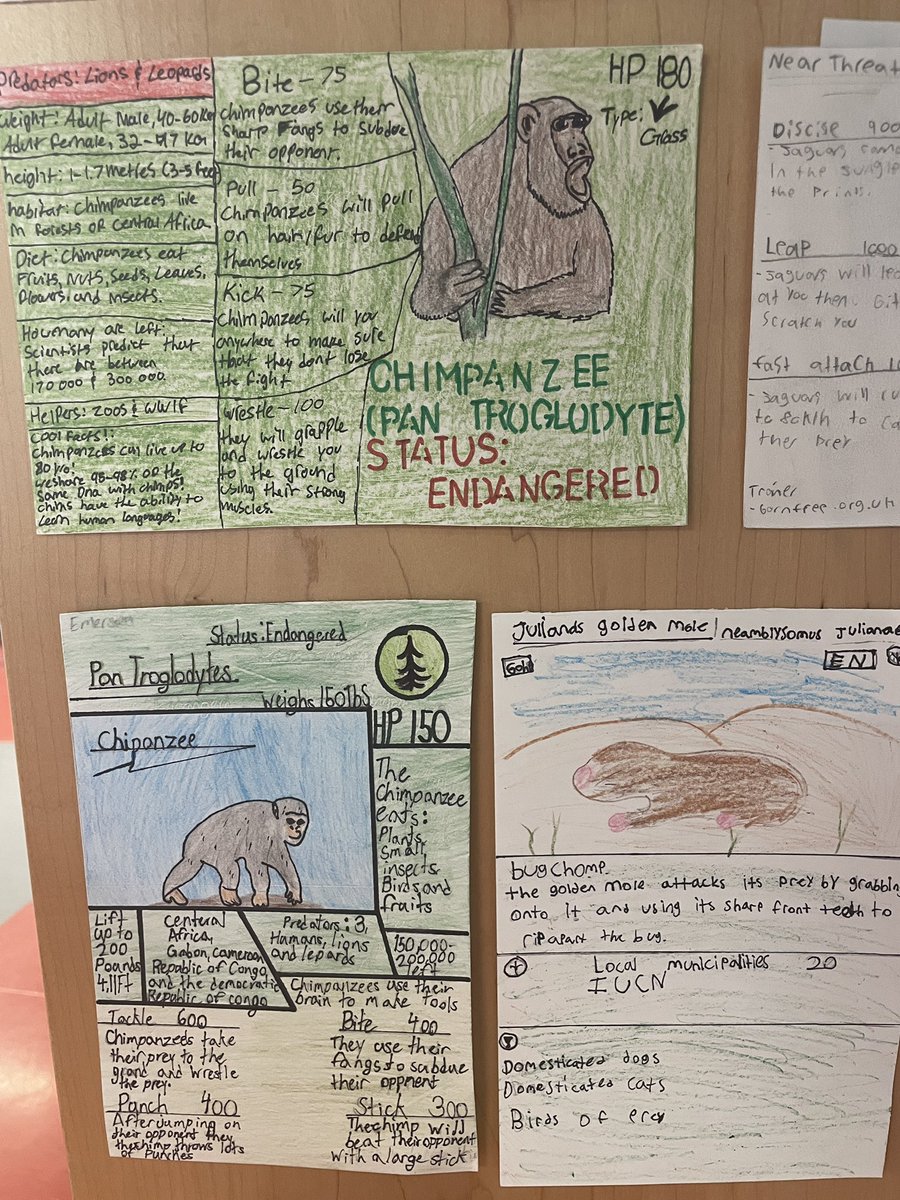 Predators: Lions & Leopards
Weight: Adult Male, 40-60 Kg
Adult Female, 32-47 KGr
height: 1-1.7 metres (3-5 feet)
habitat: Chimpanzees live
in forests of Central Africa
Diet: Chimpanzees eat
Fruits, Nuts, Seeds, Leaves,
Flowers, and Insects.
How many are left:
Scientists predict that
there are between
170 000 & 300 000.
Helpers: Zoos & WWF
Cool Facts!:
Chimpanzees can live up to
80 yrs!
we share 95-98% of the
same Dna with chimps!
chims have the ability to
learn human languages!
Bite - 75
Chimpanzees use their
sharp Fangs to subdue
their opponent.
Pull - 50
Chimpanzees will pull
on hair/fur to defend
themselves
Kick - 75
Chimpanzees will you
anywhere to make sure
that they dont lose
the fight
Wrestle - 100
they will grapple
and wrestle you
to the ground
using their strong
muscles.
HP 180
Type:
Grass
CHIMPANZEE
(PAN TROGLODYTE)
STATUS:
ENDANGERED
Near Threat
Discise 900
- Jaguars
In the
the
Leap 1000
- Jaguars will
at you then
Scratch you
fast attach
- Jaguars will
to
ther prey
Trainer
- bornfree.org.uk
Emerson
Status: Endangered
Pan Troglodytes
Weighs 150lbs
HP 150
Chipanzee
The
Chimpanzee
eats:
Plants,
Small
insects
Birds and
fruits
Lift
up to
200
Poands
4,11Ft
Centural
Africa,
Gabon, Cameroon,
Republic of Congo,
and the democratic
Republic of congo
Predators: 3,
Hamans, lions
and lepards
150,000-
200,000
left
Chimpanzees use their
brain to make tools
Tackle 600
Chimpanzeeds take
their prey to the
grond and wrestle
the prey.
Panch 400
After Jumping on
their opponent they
the chimp throws lots
of punches
Bite 400
They use their
fangs to subdue
their opponent
Stick 300
The chimp will
beat their opponent
with a large stick
Juliands golden mole neamblysomus Juliana
EN
bug chomp
the golden mole attacks its prey by grabbing
onto it and using its sharp front teeth to
rip apart the bug.
Local municipalities 20
IUCN
Domesticated dogs
Domesticated Cats
Birds of